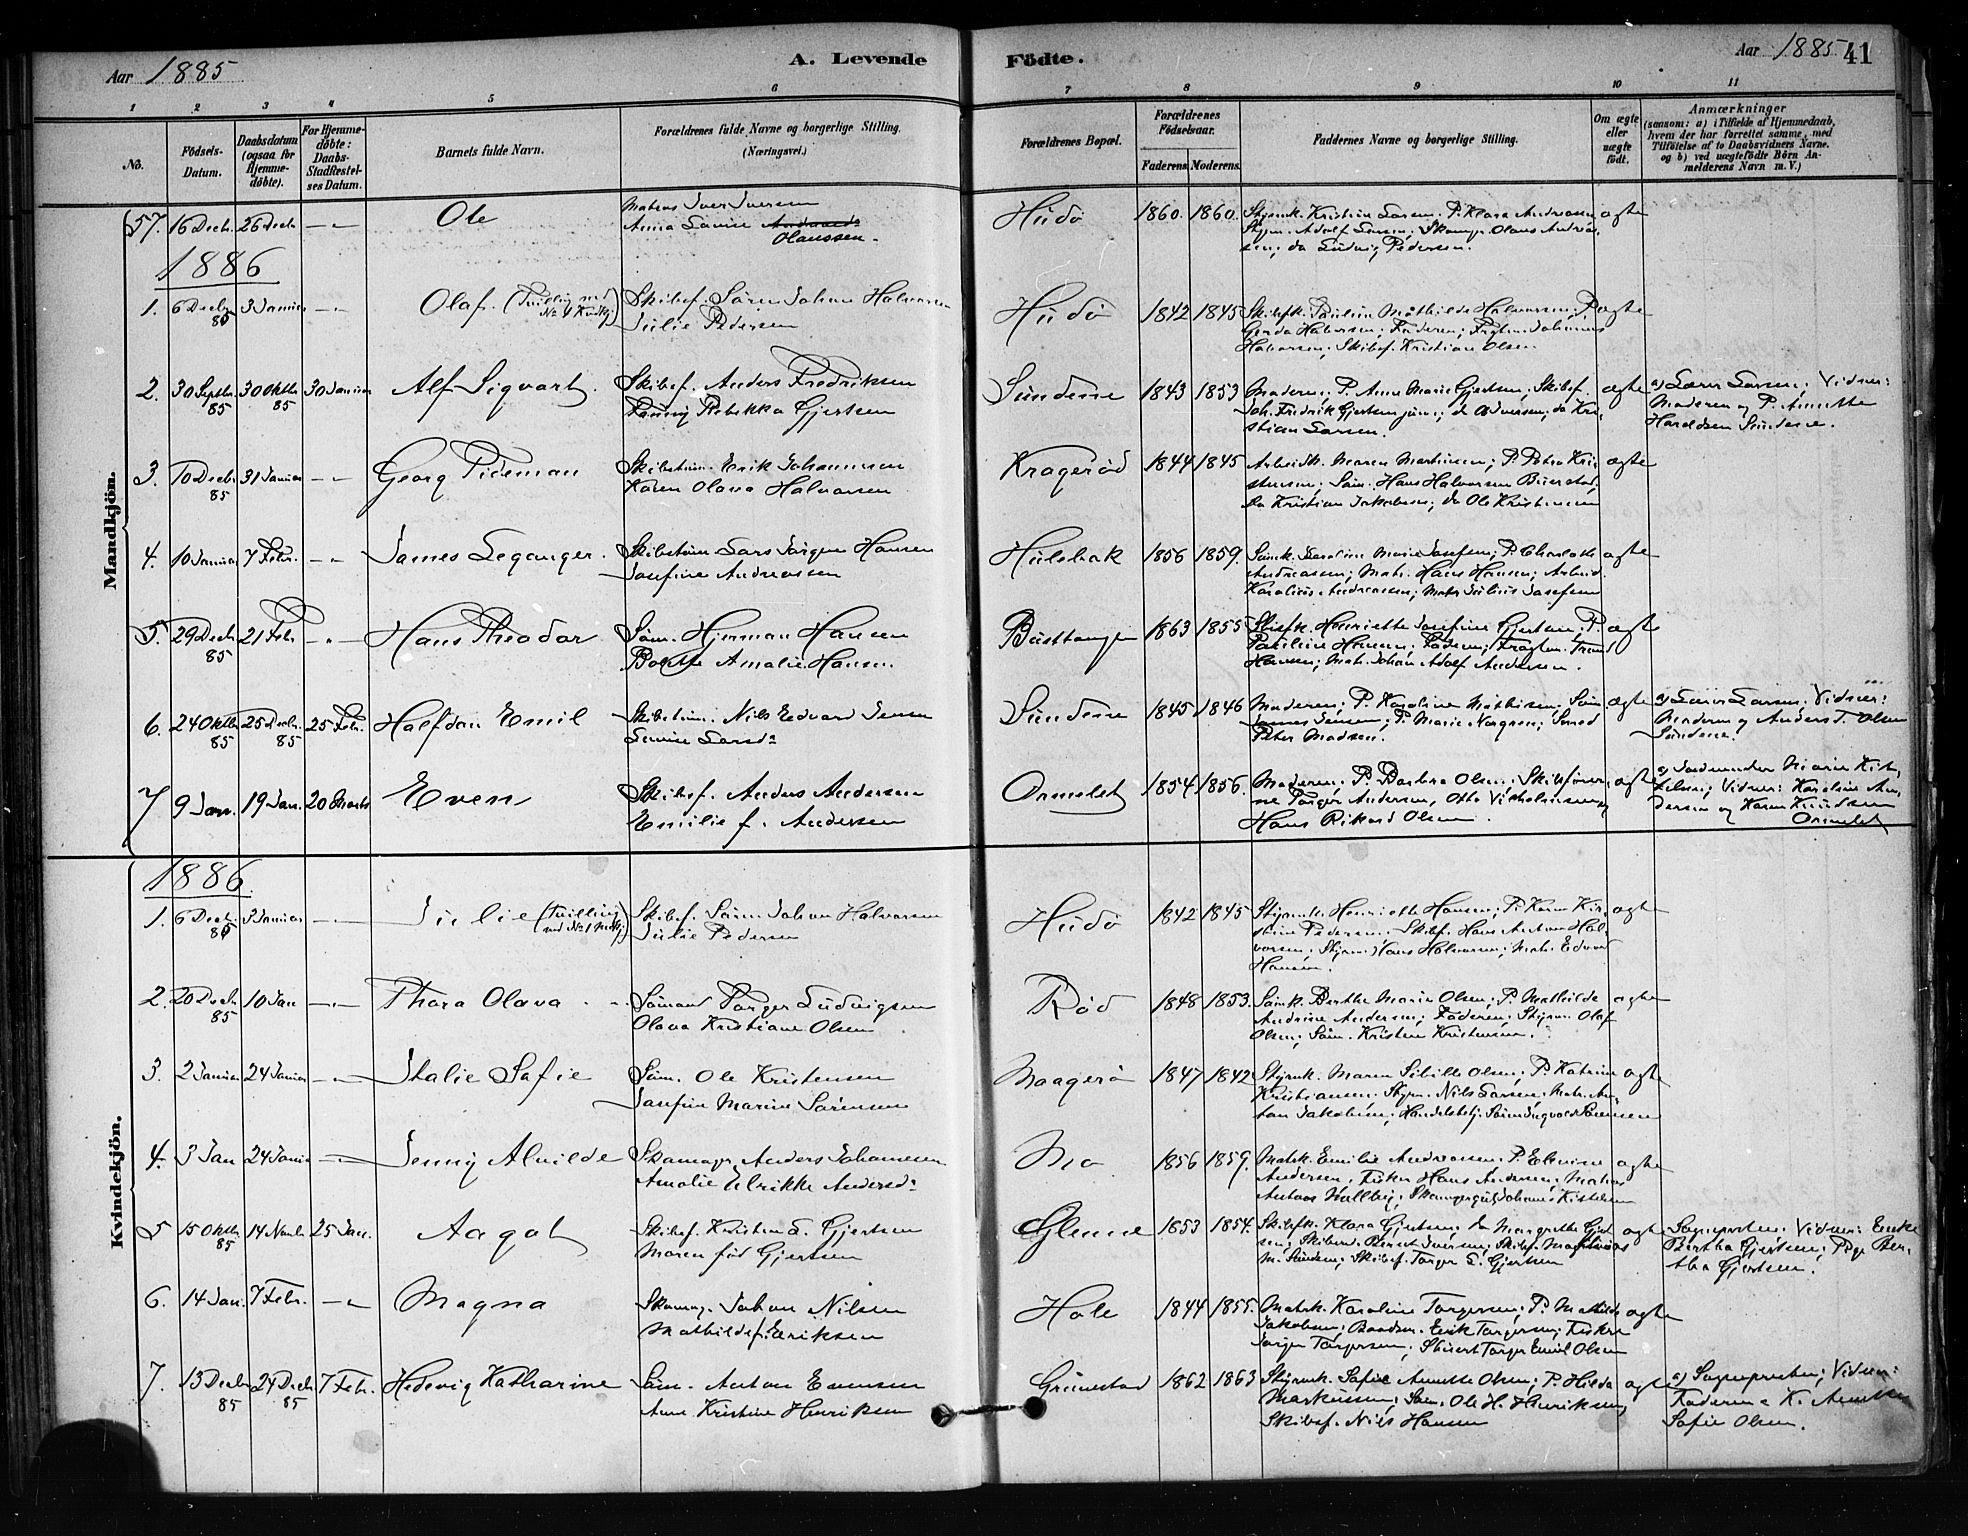 Aar 1885
A. Levende
Födte.
Aar 1885
41
1 2 3 4 5 6 7 8 9 10 11
No.
Födsels-Datum.
Daabsdatum (ogsaa for Hjemmedöbte).
For Hjemmedöbte: Daabs-Stadfæstelses Datum.
Barnets fulde Navn.
Forældrenes fulde Navne og borgerlige Stilling. (Næringsvei.)
Forældrenes Bopæl.
Forældrenes Födselsaar.
Faderens. Moderens.
Faddernes Navne og borgerlige Stilling.
Om ægte eller uægte født.
Anmærkninger
(saasom: a) i Tilfælde af Hjemmedaab, hvem der har forrettet samme, med Tilföielse af to Daabsvidners Navne. og b) ved uægtefödte Börn Anmelderens Navn m. V.)
Mandkjön.
57. 16 Decbr. 26 Decbr. -"- Ole
Matros Iver Iversen
Anna Lovise Olaussen.
Hudö 1860. 1860.
Styrmk. Kristine Larsen. P. Klara Andreasen
Styrm. Adolf Larsen; Skomgr. Olaus Andreas
sen; do Ludvig Pedersen.
ægte
1886
1. 6 Decbr. 85 3 Januar -"- Olaf. (Tvilling med No 1 Kvindkj.)
Skibsf. Sören Johan Halvorsen
Julie Pedersen
Hudö 1842 1845
Skibsfk. Pauline Mathilde Halvorsen; P.
Gerda Halvorsen; Faderen; Johannes
Halvorsen; Skibsf. Kristian Olsen
ægte
2. 30 Septbr. 85 30 Oktbr. 85 30 Januar Alf Sigvart.
Skibsf. Anders Fredriksen
Fanny Rebekka Gjertsen
Sundene 1843 1853
Moderen; P. Anne Marie Gjertsen; Skibsf.
Joh. Fredrik Gjertsen jun.; do Kri-
stian Larsen.
ægte
a) Lærer Larsen; Vidner:
Moderen og P. Annette
Haraldsen Sundene.
3. 10 Decbr. 85 31 Januar -"- Georg Tideman
Skibstøm. Erik Johannesen
Karen Olava Halvorsen
Krageröd 1844 1845
Arbeidk. Maren Martinsen; P. Petra Kri-
stensen; Söm. Hans Halvorsen
do Kristian Jakobsen; do Ole Kristensen
ægte
4. 10 Januar 7 Febr. -"- James Leganger.
Skibstöm. Lars Jörgen Hansen
Josefine Andreassen
Hulebak 1856 1859.
Sömk. Karoline Marie Josefsen; P. Charlotte
Andreassen; Matr. Hans Hansen; Arbeid.
Karolius Andreassen; Matr. Julius Josefsen
ægte
5. 29 Decbr. 85 21 Febr -"- Hans Theodor
Söm. Herman Hansen
Bolette Amalie Hansen.
Busttangen 1863 1855
Skibsfk. Henriette Josefine Gjertsen; P.
Pauline Hansen; Faderen;
Hansen; Matr. Johan Adolf Andersen.
ægte
6. 24 Oktbr. 85 25 Decbr. 85 25 Febr. Halfdan Emil
Skibstöm. Nils Edvard Jensen
Lovise Larsdr
Sundene 1845 1846
Moderen; P. Karoline Mathisen; Söm
James Jensen; P. Marie
Peter Madsen.
ægte
a) Lærer Larsen. Vidner:
Moderen og Anders T. Olsen
Sundene.
7 9 Jan. 19 Jan. 20 Marts Even
Skibsf. Anders Andersen
Emilie f. Andersen
Ormelet 1854 1856.
Moderen; P. Barbra Olsen; Skibsförer-
ne Torger Andersen, Otto Vilhelmsen og
Hans Rikard Olsen.
ægte
a) Jordmoder Marie Kit-
telsen; Vidner: Karoline An-
dersen og Karen Knudsen
Ormelet
Kvindekjön.
1886.
1. 6 Decbr. 85 3 Januar -"- Julie (Tvilling med No 1 Mandkj.)
Skibsf. Sören Johan Halvorsen
Julie Pedersen
Hudö 1842 1845
Styrmk. Henriette Hansen; P. Karen Kir-
stine Pedersen; Skibsf. Hans Anton Hal-
vorsen; Styrm. Hans Halvorsen; Matr. Edvard
Hansen.
ægte
2. 20 Decbr. 85 10 Jan -"- Thora Olava
Sömand Torger Ludvigsen
Olava Kristiane Olsen
Röd 1848 1853.
Sömk. Berthe Marie Olsen; P. Mathilde
Andrine Andersen; Faderen; Styrm. Olaf
Olsen; Söm. Kristen Kristensen.
ægte
3. 2 Januar 24 Januar -"- Italie Sofie
Söm. Ole Kristensen
Josefine Marine Sörensen
Maagerö 1847 1842
Styrmk. Maren Sibille Olsen; P. Katrine
Kristiansen; Styrm. Nils Larsen; Matr. An-
ton Jakobsen; Handelsbetj. Sören Ingvald Sörensen
ægte
4. 3 Jan 24 Januar -"- Jenny Alvilde
Skomagr Anders Johannesen
Amalie Ulrikke Andersdr
Mo 1856 1859.
Matrk. Emilie Andreassen; P. Elevine
Andersen; Fisker Hans Andersen; Matros
Antoni Skomagergut Johannes Kittelsen
ægte
5 15 Oktbr. 85 14 Novbr. 25 Jan. Aagot
Skibsf. Kristen L. Gjertsen
Maren född Gjertsen
Glenne 1853 1854.
Skibsfk. Klara Gjertsen; do Margrethe Gjert
sen; Skibsrd. Bernt Iversen; Skibsf. Mathias
M. Skibsf. Torger L. Gjertsen
ægte
Sognepresten; Vidner: Enke
Bertha Gjertsen; Pige Ber-
tha Gjertsen.
6. 14 Jan. 7 Febr. -"- Magna
Skomag. Johan Nilsen
Mathilde f. Eriksen
Hole 1844 1855.
Matrk. Karoline Torgersen; P. Mathilde
Jakobsen; Baadsm. Erik Torgersen; Fisker
Jörgen Torgersen; Stuert Torger Emil Olsen
ægte
7. 13 Decbr 85 24 Decbr 85 7 Febr. Hedevig Katharine
Söm. Anton Evensen
Anne Kristine Henriksen
Grimestad 1862 1863
Styrmk. Sofie Annette Olsen; P. Hilda
Markussen; Söm. Ole H. Henriksen;
Skibsf. Nils Hansen
ægte
a) Sognepresten; Vidner:
Faderen & K. Annette
Sofie Olsen.